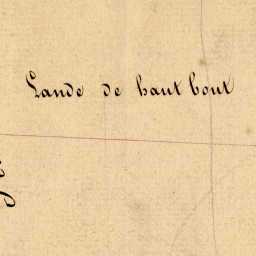 Lande de haut bout